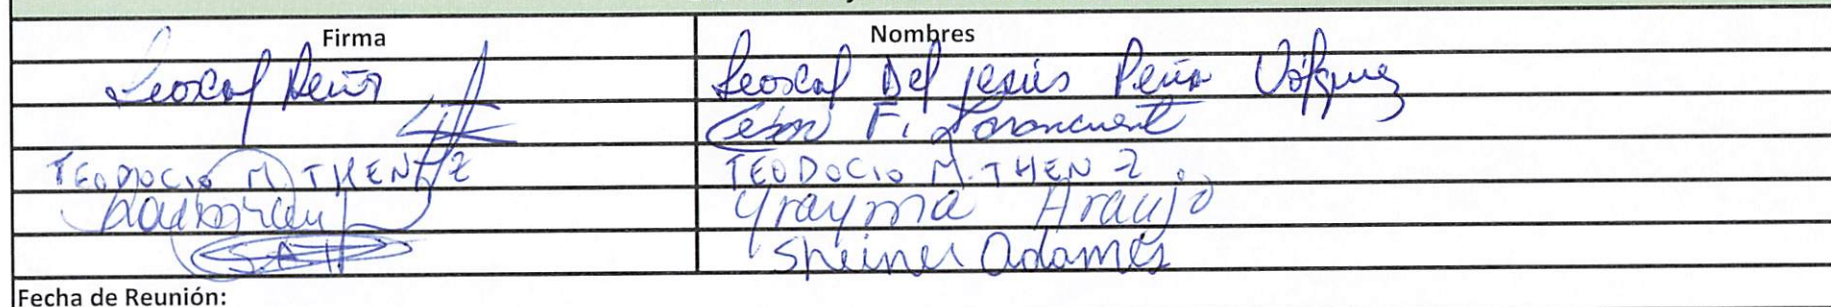 Firma Nombres
Leoscal Peña Leoscal Del Jesús Peña Vásquez
César F.
TEODOCIO M THEN Z TEODOCIO M. THEN Z.
Yrayma Araujo
S.A Sheiner Adames
Fecha de Reunión: